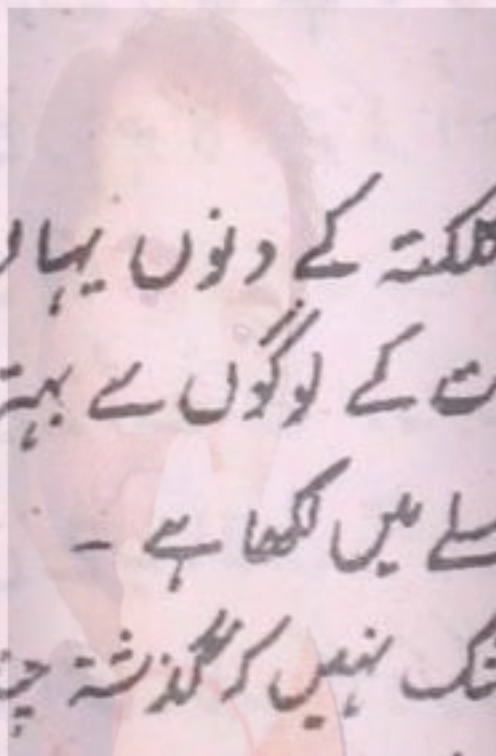 کلکتہ کے دنوں یہاں
کے لوگوں سے
میں لکھا ہے -
شک نہیں کہ گذشتہ